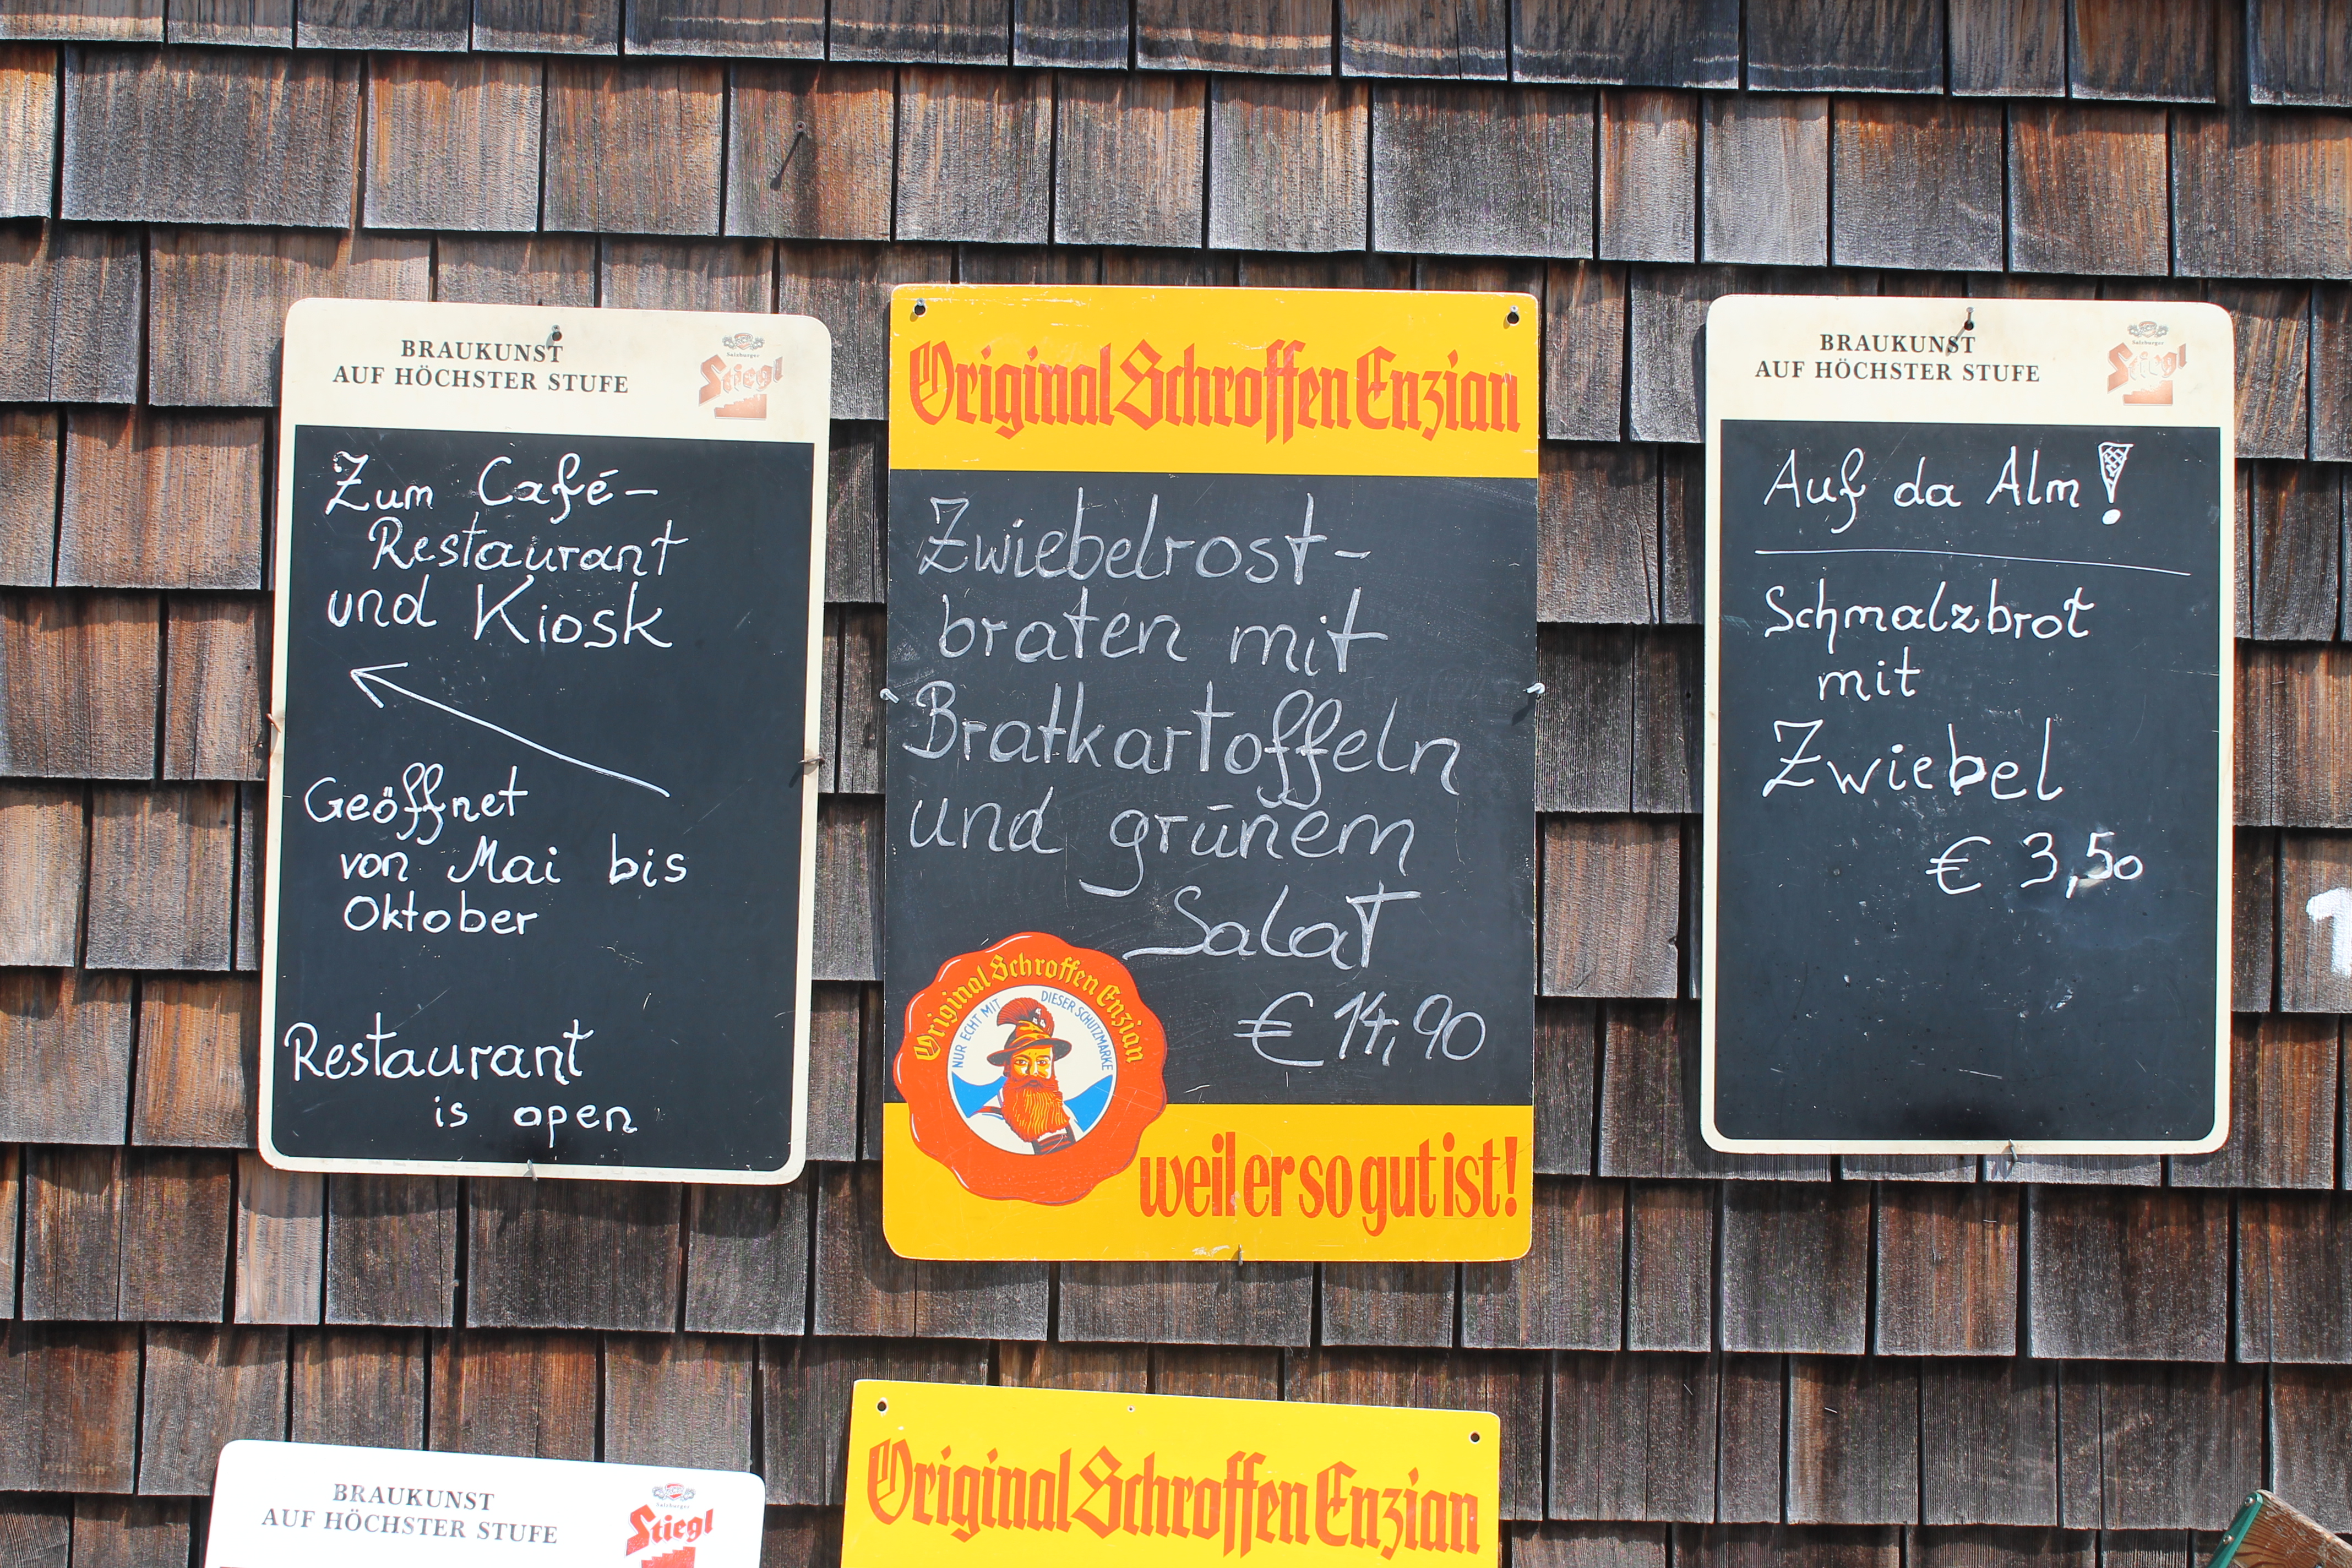 BRAUKUNST
AUF HÖCHSTER STUFE
Salzburger
Stiegl
Zum Café-
Restaurant
und Kiosk
Geöffnet
von Mai bis
Oktober
Restaurant
is open
Original Schroffen Enzian
Zwiebelrost-
braten mit
Bratkartoffeln
und grünem
Salat
€ 14,90
Original Schroffen Enzian
NUR ECHT MIT DIESER SCHUTZMARKE
weil er so gut ist!
BRAUKUNST
AUF HÖCHSTER STUFE
Salzburger
Stiegl
Auf da Alm!
Schmalzbrot
mit
Zwiebel
€ 3,50
1
BRAUKUNST
AUF HÖCHSTER STUFE
Salzburger
Stiegl
Original Schroffen Enzian